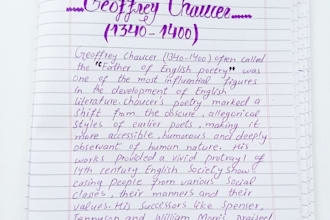 Geoffrey Chaucer
(1340-1400)
Geoffrey Chaucer (1340-1400) often called
the "Father of English poetry" was
one of the most influential figures
in the development of English
literature. Chaucer's poetry marked a
shift from the obscure, allegorical
styles of earlier poets, making it
more accessible, humorous and deeply
observant of human nature. His
works provided a vivid protrayl of
14th century English Society show-
casing people from various social
classes, their manners and their
values. His successors like Spenser,
Tennyson and William Morris praised